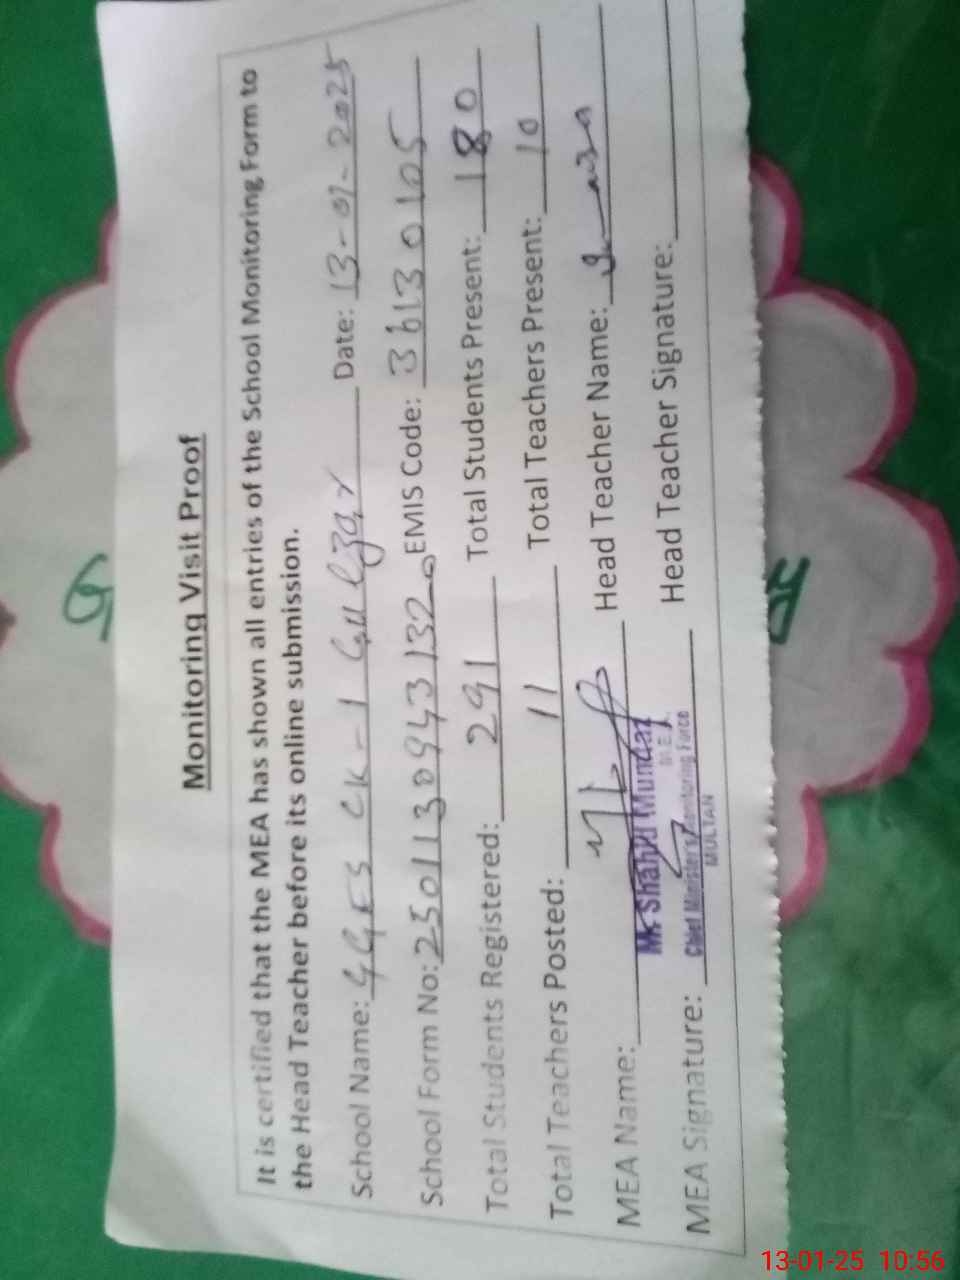 Monitoring Visit Proof
It is certified that the MEA has shown all entries of the School Monitoring Form to
the Head Teacher before its online submission.
School Name: GGES CK-1 Gulzar Date: 13-01-2025
School Form No: 25011309431320 EMIS Code: 36130105
Total Students Registered: 291 Total Students Present: 180
Total Teachers Posted: 11 Total Teachers Present: 10
MEA Name: Head Teacher Name:
Mr Shahid Mumtaz
M.E.A
MEA Signature: Head Teacher Signature:
Chief Minister's Monitoring Force
MULTAN
13-01-25 10:56